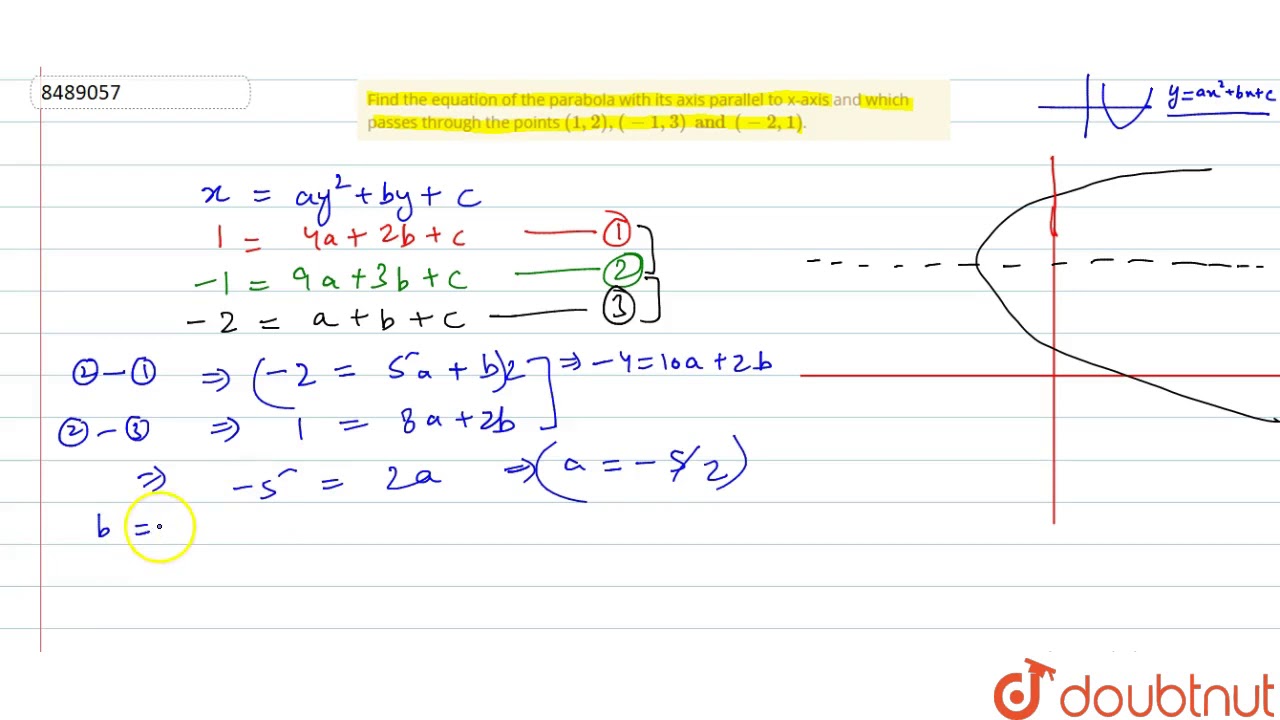 8489057
Find the equation of the parabola with its axis parallel to x-axis and which
passes through the points (1, 2), (−1, 3) and (−2, 1).
y=ax²+bx+c
x = ay²+by+c
1 = 4a+2b+c ①
-1 = 9a+3b+c ②
-2 = a+b+c ③
②-① ⇒ (-2 = 5a+b)2 ⇒ -4=10a+2b
②-③ ⇒ 1 = 8a+2b
⇒ -5 = 2a ⇒ (a = -5/2)
b =
doubtnut